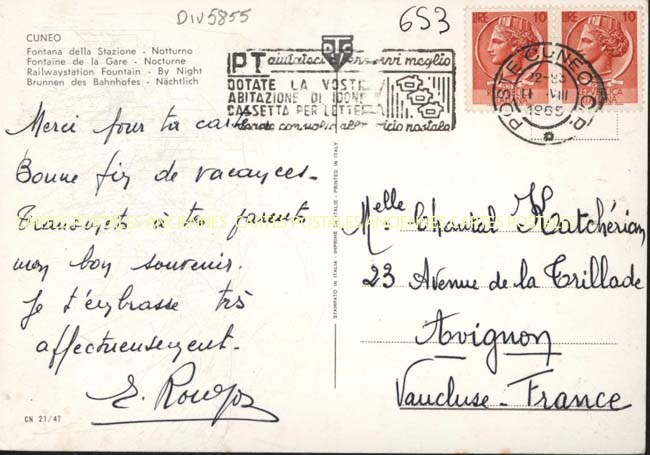 DIV5855
653
CUNEO
Fontana della Stazione - Notturno
Fontaine de la Gare - Nocturne
Railwaystation Fountain - By Night
Brunnen des Bahnhofes - Nächtlich
PT aiutateci a servirvi meglio
DOTATE LA VOSTRA
ABITAZIONE DI IDONEA
CASSETTA PER LETTERE
LIRE 10
LIRE 10
POSTE CUNEO C.P.
VIII
1965
Merci pour ta carte
Bonne fin de vacances -
Transmets à tes parents
mon bon souvenir.
Je t'embrasse très
affectueusement -
CN 21/47
STAMPATO IN ITALIA - IMPRIMÉ EN ITALIE - PRINTED IN ITALY
CARTES POSTALES ANCIENNES CARTES POSTALES ANCIENNES CARTES POSTALES
Melle Chantal Hatchérian
23 Avenue de la Trillade
Avignon
Vaucluse - France